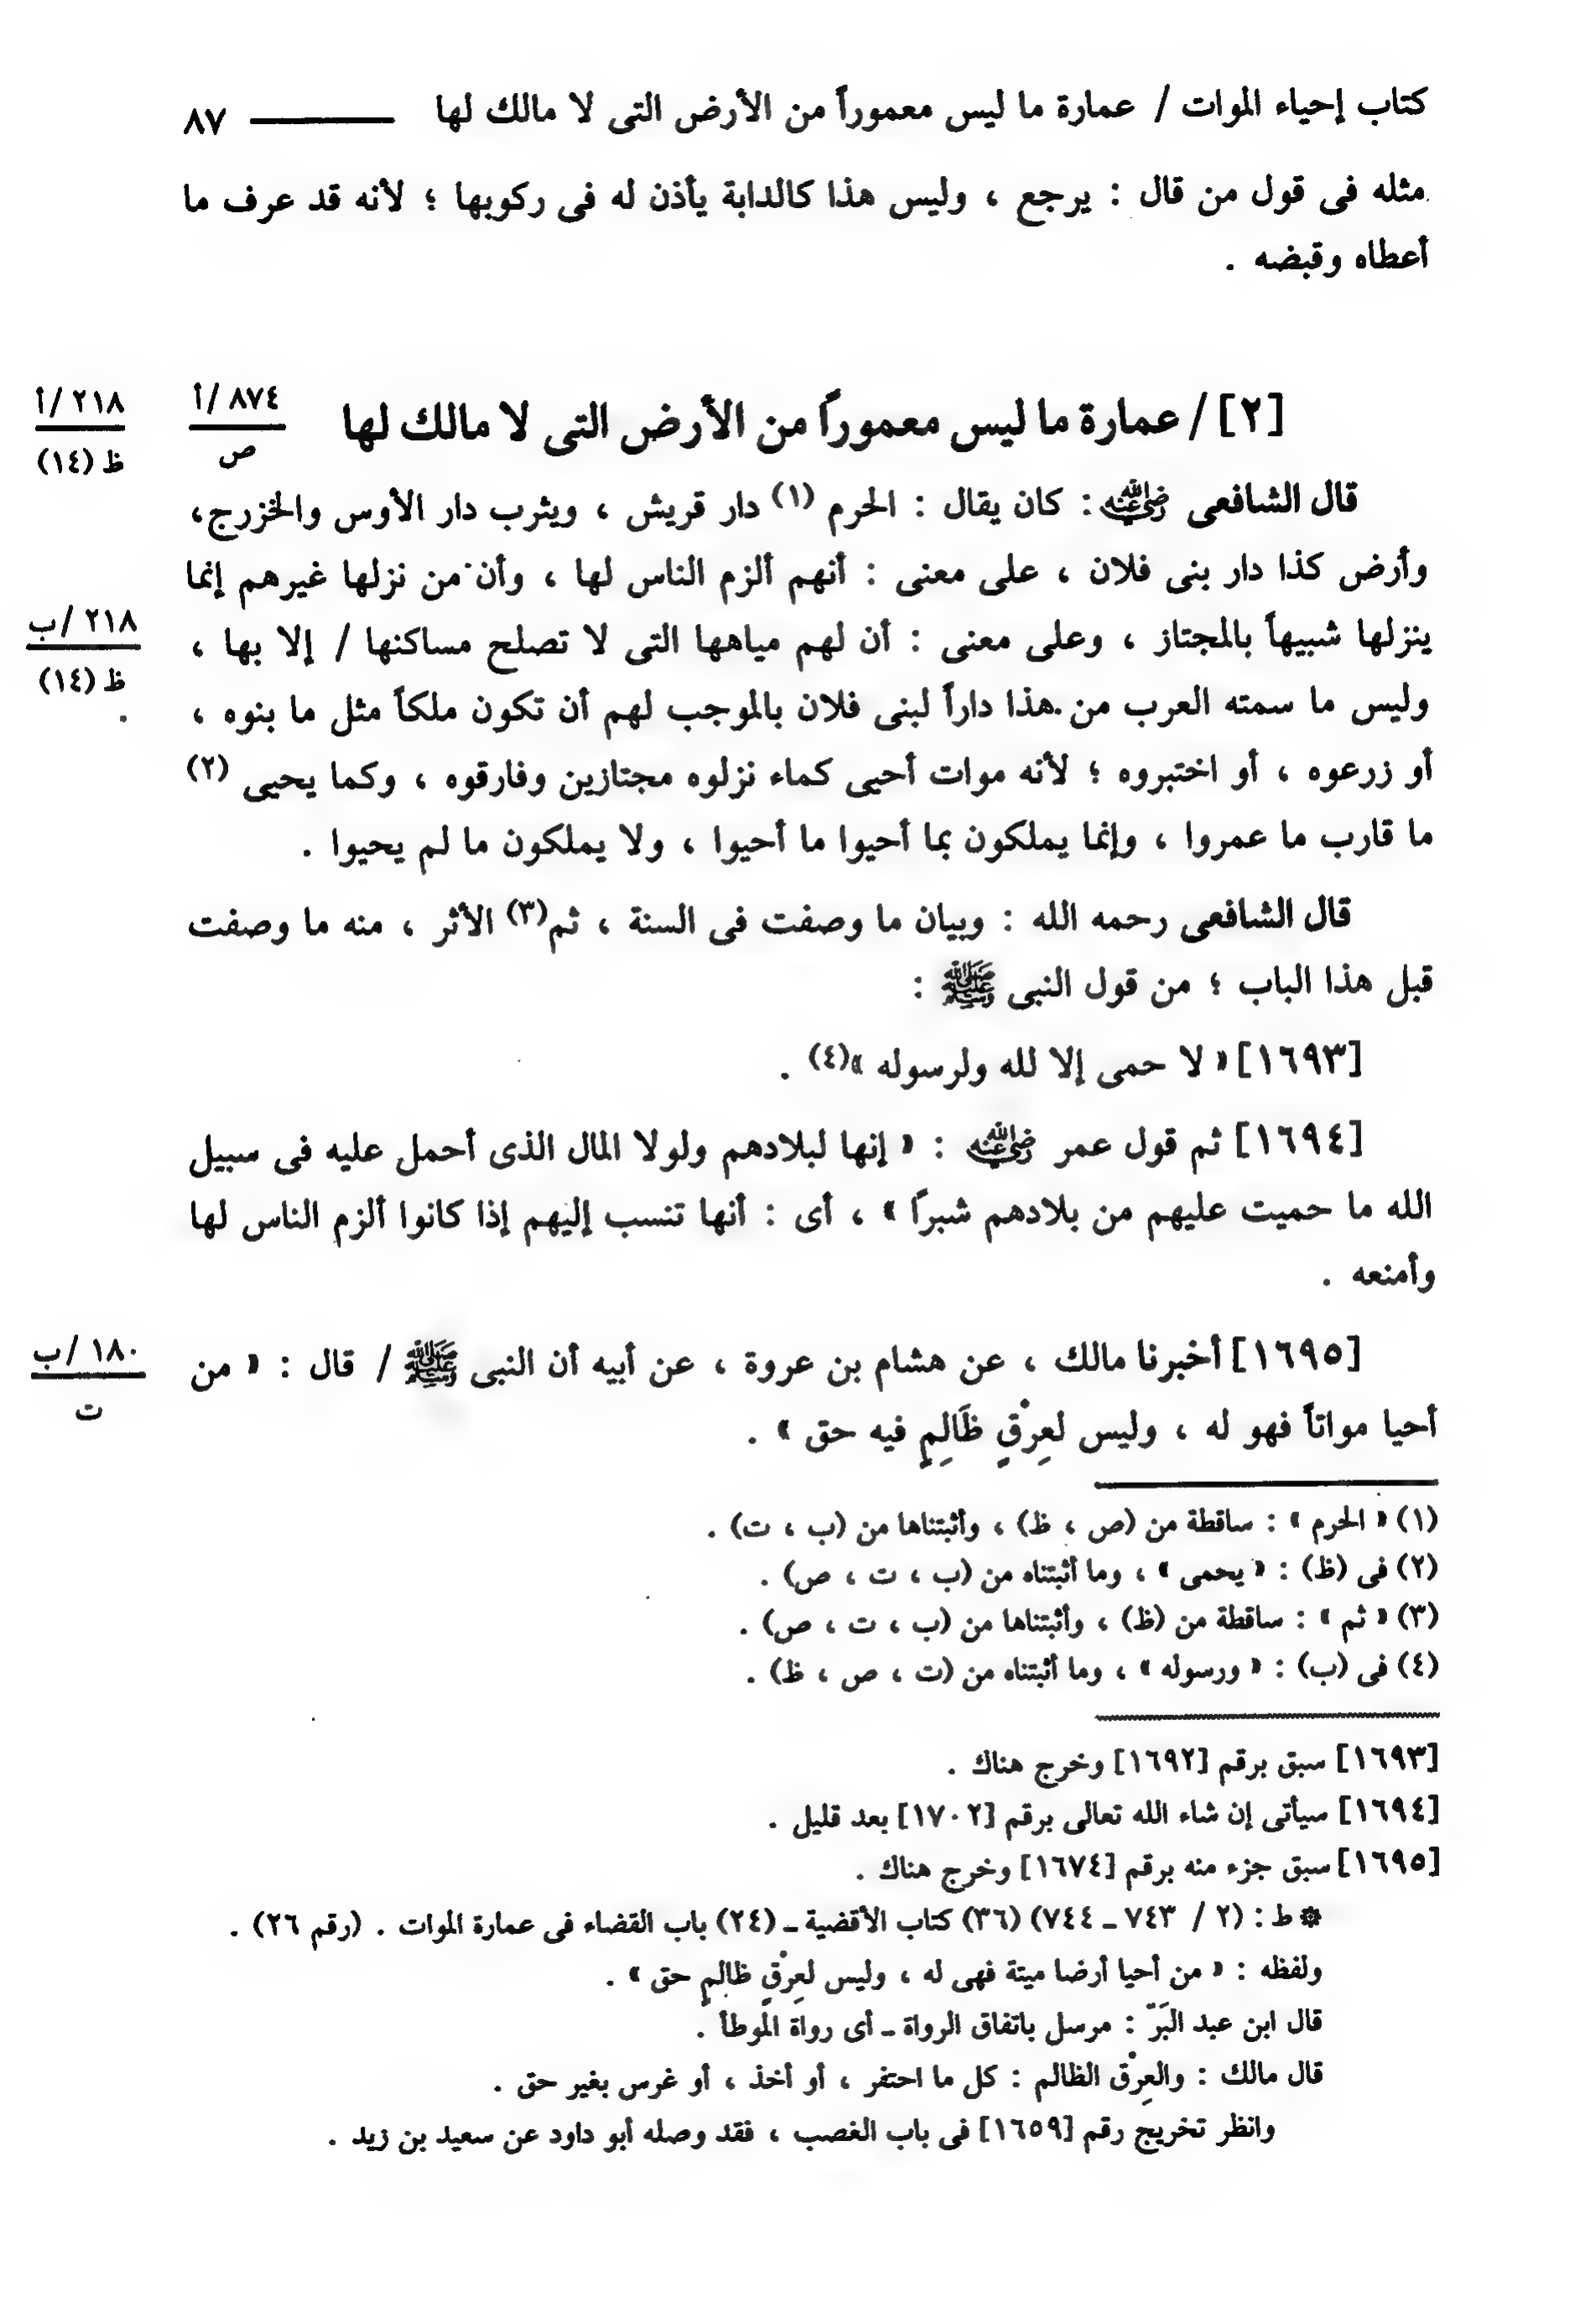 كتاب إحياء الموات / عمارة ما ليس معموراً من الأرض التى لا مالك لها ــــــ ٨٧
مثله فى قول من قال : يرجع ، وليس هذا كالدابة يأذن له فى ركوبها ؛ لأنه قد عرف ما
أعطاه وقبضه .
[٢] / عمارة ما ليس معموراً من الأرض التى لا مالك لها
٨٧٤ /أ
ص
٢١٨ /أ
ظ (١٤)
قال الشافعى رضي الله عنه : كان يقال : الحرم (١) دار قريش ، ويثرب دار الأوس والخزرج،
وأرض كذا دار بنى فلان ، على معنى : أنهم ألزم الناس لها ، وأن من نزلها غيرهم إنما
ينزلها شبيهاً بالمجتاز ، وعلى معنى : أن لهم مياهها التى لا تصلح مساكنها / إلا بها ،
٢١٨ /ب
ظ (١٤)
وليس ما سمته العرب من هذا داراً لبنى فلان بالموجب لهم أن تكون ملكاً مثل ما بنوه ،
أو زرعوه ، أو اختبروه ؛ لأنه موات أحيى كماء نزلوه مجتازين وفارقوه ، وكما يحيى (٢)
ما قارب ما عمروا ، وإنما يملكون بما أحيوا ما أحيوا ، ولا يملكون ما لم يحيوا .
قال الشافعى رحمه الله : وبيان ما وصفت فى السنة ، ثم(٣) الأثر ، منه ما وصفت
قبل هذا الباب ؛ من قول النبى ﷺ :
[١٦٩٣] « لا حمى إلا لله ولرسوله »(٤) .
[١٦٩٤] ثم قول عمر رضي الله عنه : « إنها لبلادهم ولولا المال الذى أحمل عليه فى سبيل
الله ما حميت عليهم من بلادهم شبراً » ، أى : أنها تنسب إليهم إذا كانوا ألزم الناس لها
وأمنعه .
[١٦٩٥] أخبرنا مالك ، عن هشام بن عروة ، عن أبيه أن النبى ﷺ / قال : « من
١٨٠ /ب
ت
أحيا مواتاً فهو له ، وليس لعِرْقٍ ظَالِمٍ فيه حق » .
(١) « الحرم » : ساقطة من (ص ، ظ) ، وأثبتناها من (ب ، ت) .
(٢) فى (ظ) : « يحمى » ، وما أثبتناه من (ب ، ت ، ص) .
(٣) « ثم » : ساقطة من (ظ) ، وأثبتناها من (ب ، ت ، ص) .
(٤) فى (ب) : « ورسوله » ، وما أثبتناه من (ت ، ص ، ظ) .
[١٦٩٣] سبق برقم [١٦٩٢] وخرج هناك .
[١٦٩٤] سيأتى إن شاء الله تعالى برقم [١٧٠٢] بعد قليل .
[١٦٩٥] سبق جزء منه برقم [١٦٧٤] وخرج هناك .
* ط : (٢ / ٧٤٣ ـ ٧٤٤) (٣٦) كتاب الأقضية ـ (٢٤) باب القضاء فى عمارة الموات . (رقم ٢٦) .
ولفظه : « من أحيا أرضا ميتة فهى له ، وليس لعِرْقٍ ظالمٍ حق » .
قال ابن عبد البَرّ : مرسل باتفاق الرواة ـ أى رواة الموطأ .
قال مالك : والعِرْق الظالم : كل ما احتفر ، أو أخذ ، أو غرس بغير حق .
وانظر تخريج رقم [١٦٥٩] فى باب الغصب ، فقد وصله أبو داود عن سعيد بن زيد .